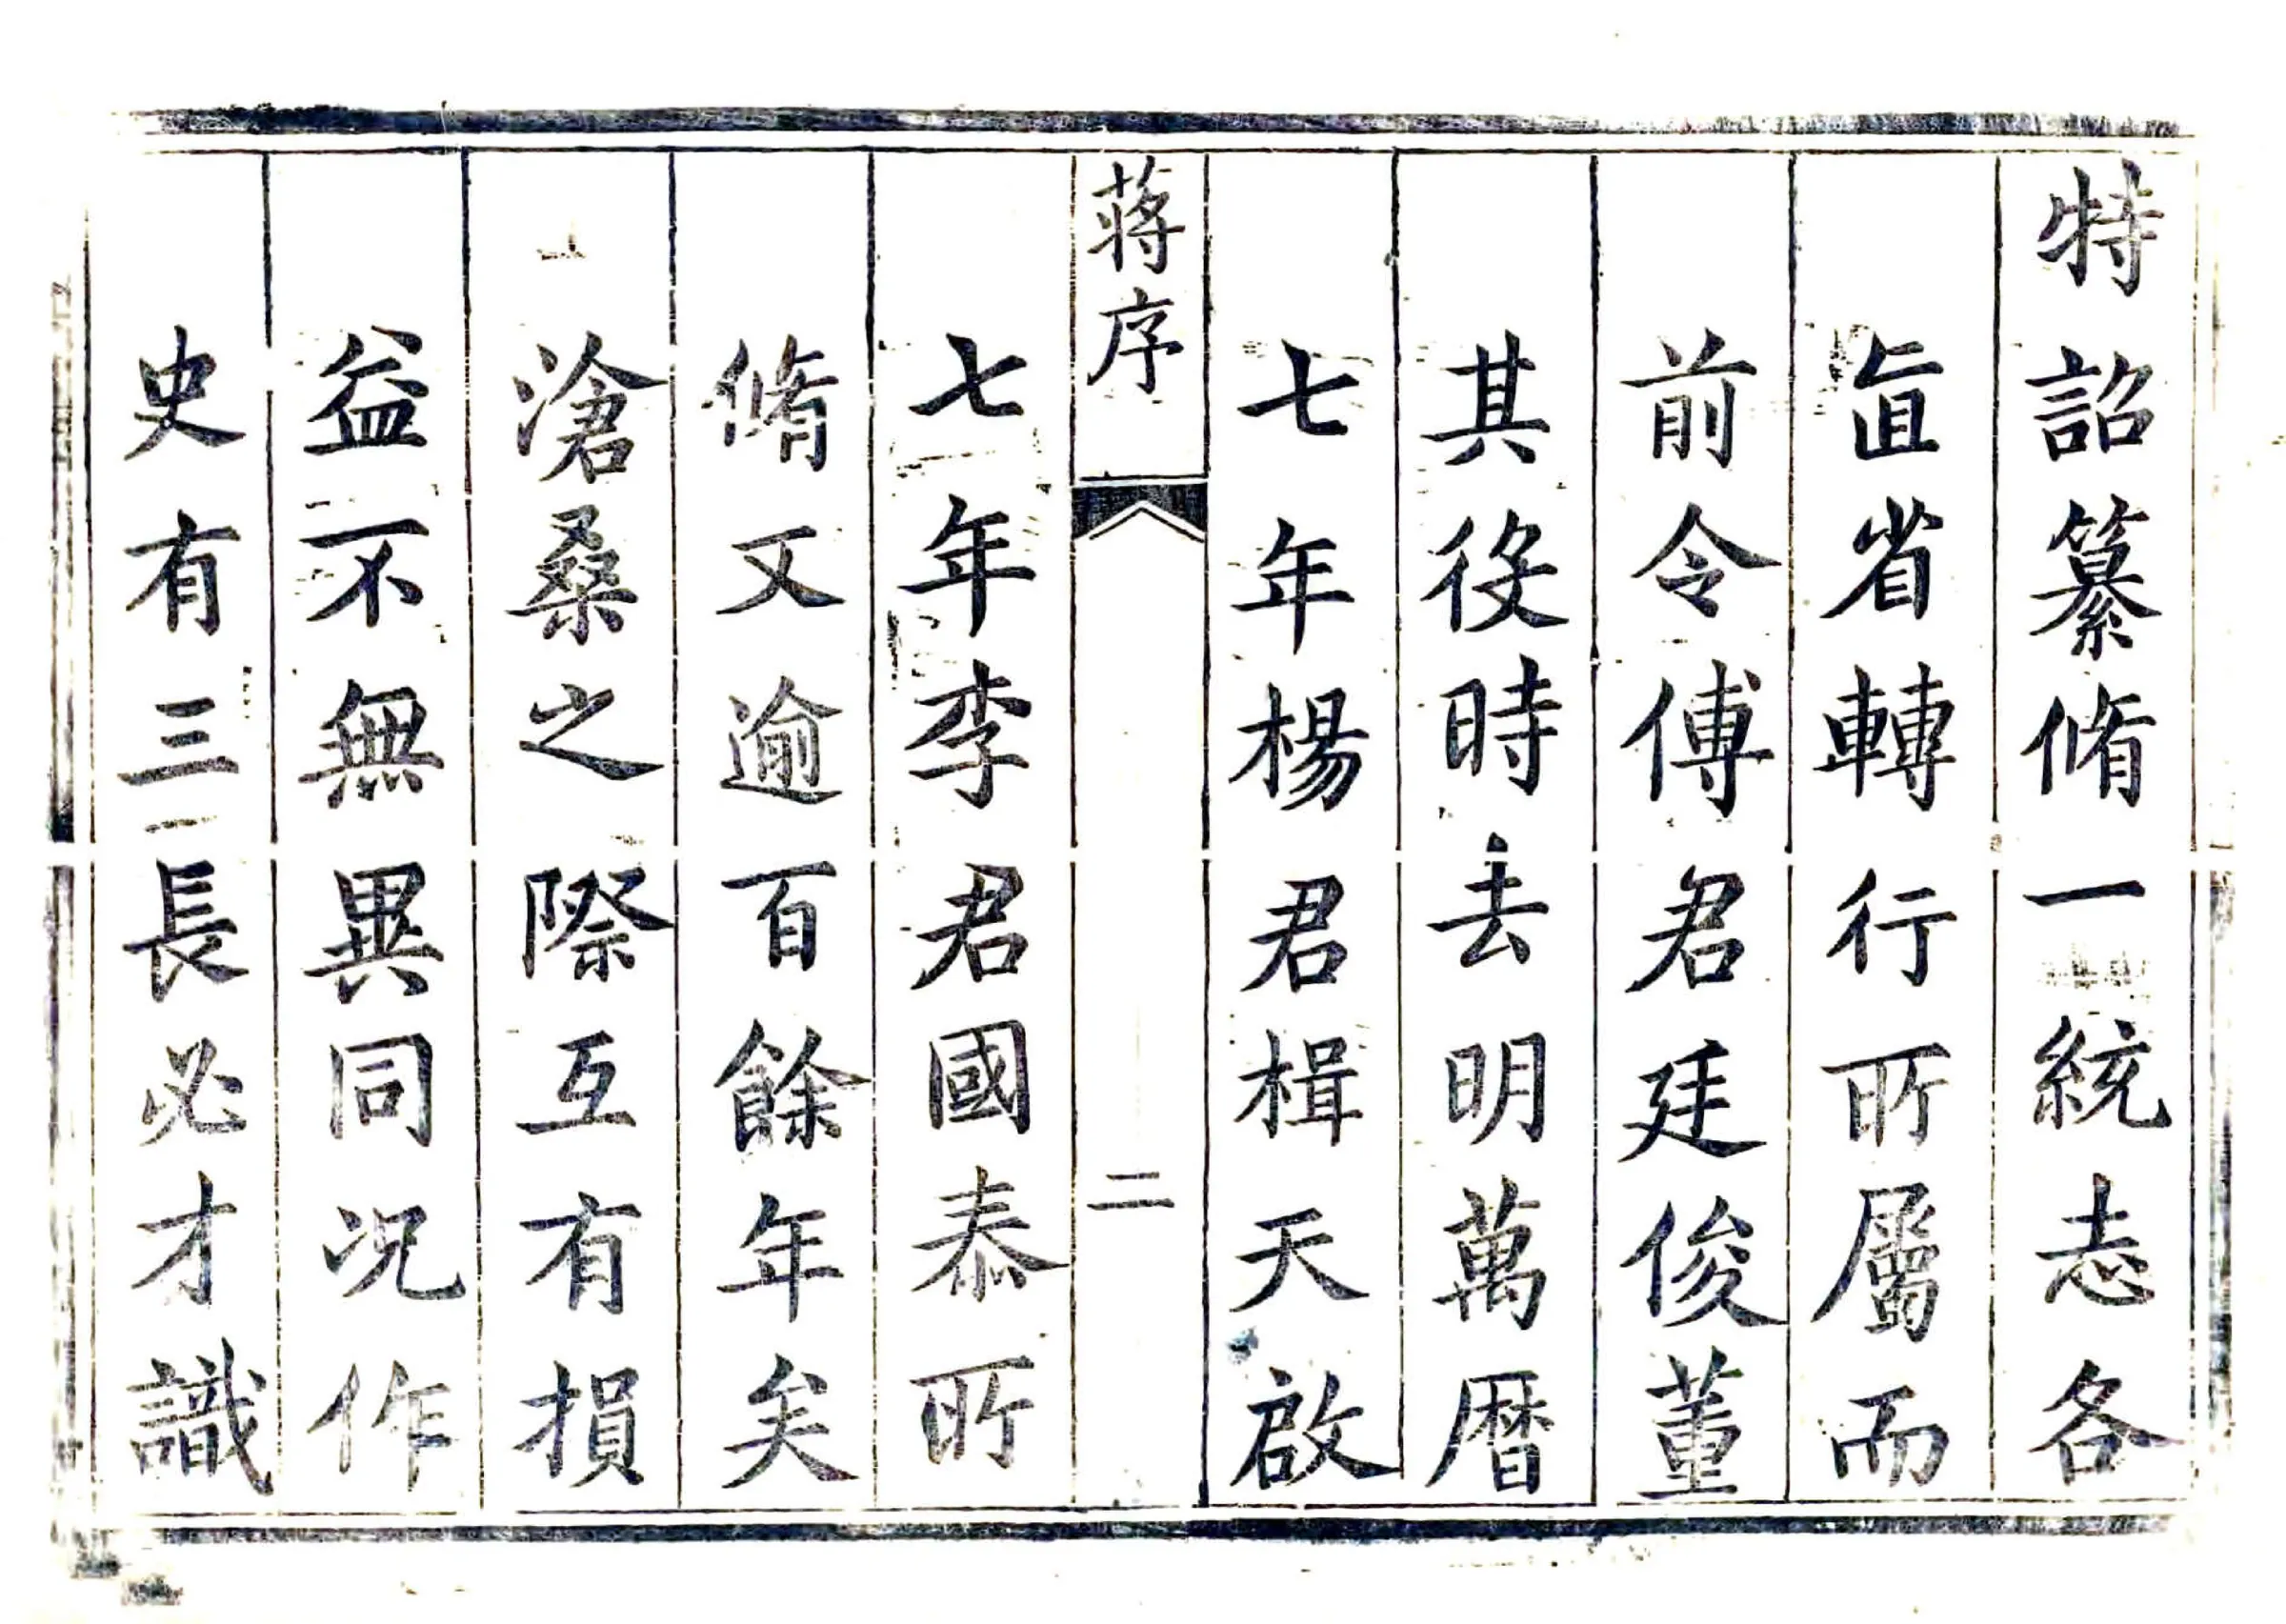 特詔纂脩一統志各
直省轉行所屬而
前令傅君廷俊董
其役時去明萬曆
七年楊君楫天啟
蔣序
二
七年李君國泰所
脩又逾百餘年矣
滄桑之際互有損
益不無異同況作
史有三長必才識